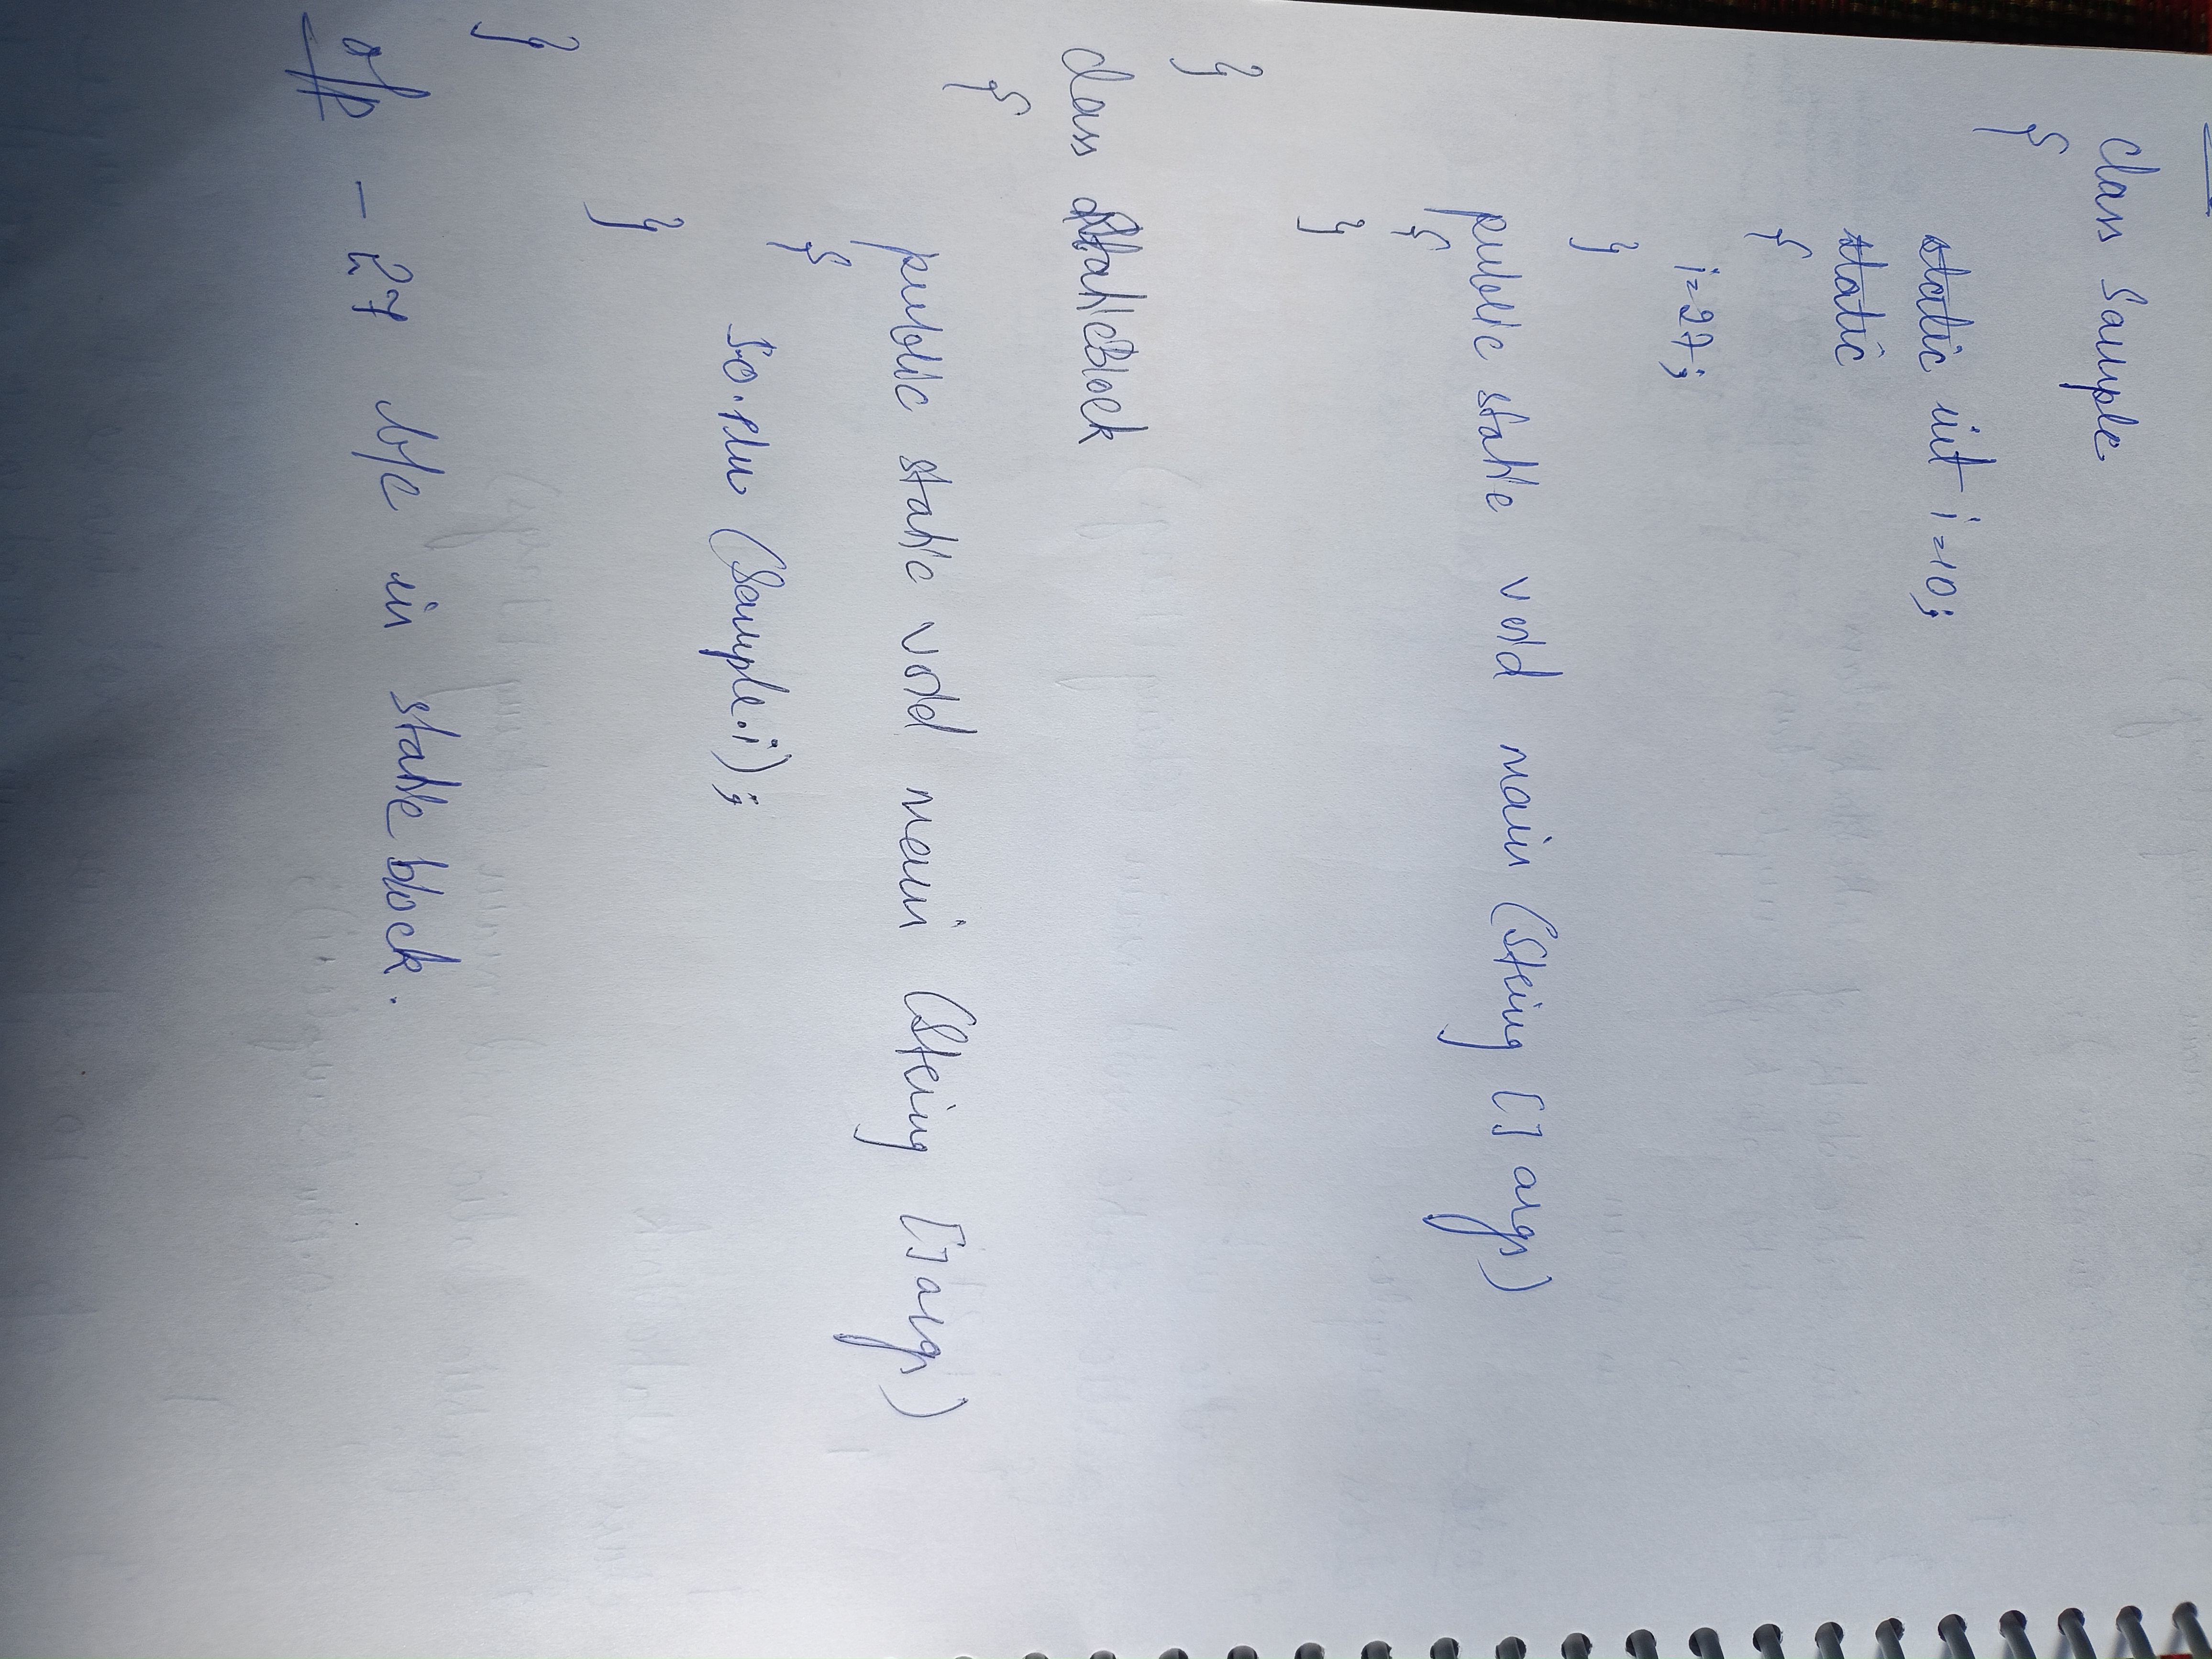 class Sample
{
static int i=10;
static
{
i=27;
}
public static void main (String [] args)
{
}
}
class StaticBlock
{
public static void main (String [] args)
{
S.O.Pln (Sample.i);
}
}
o/p - 27 b/c in static block.